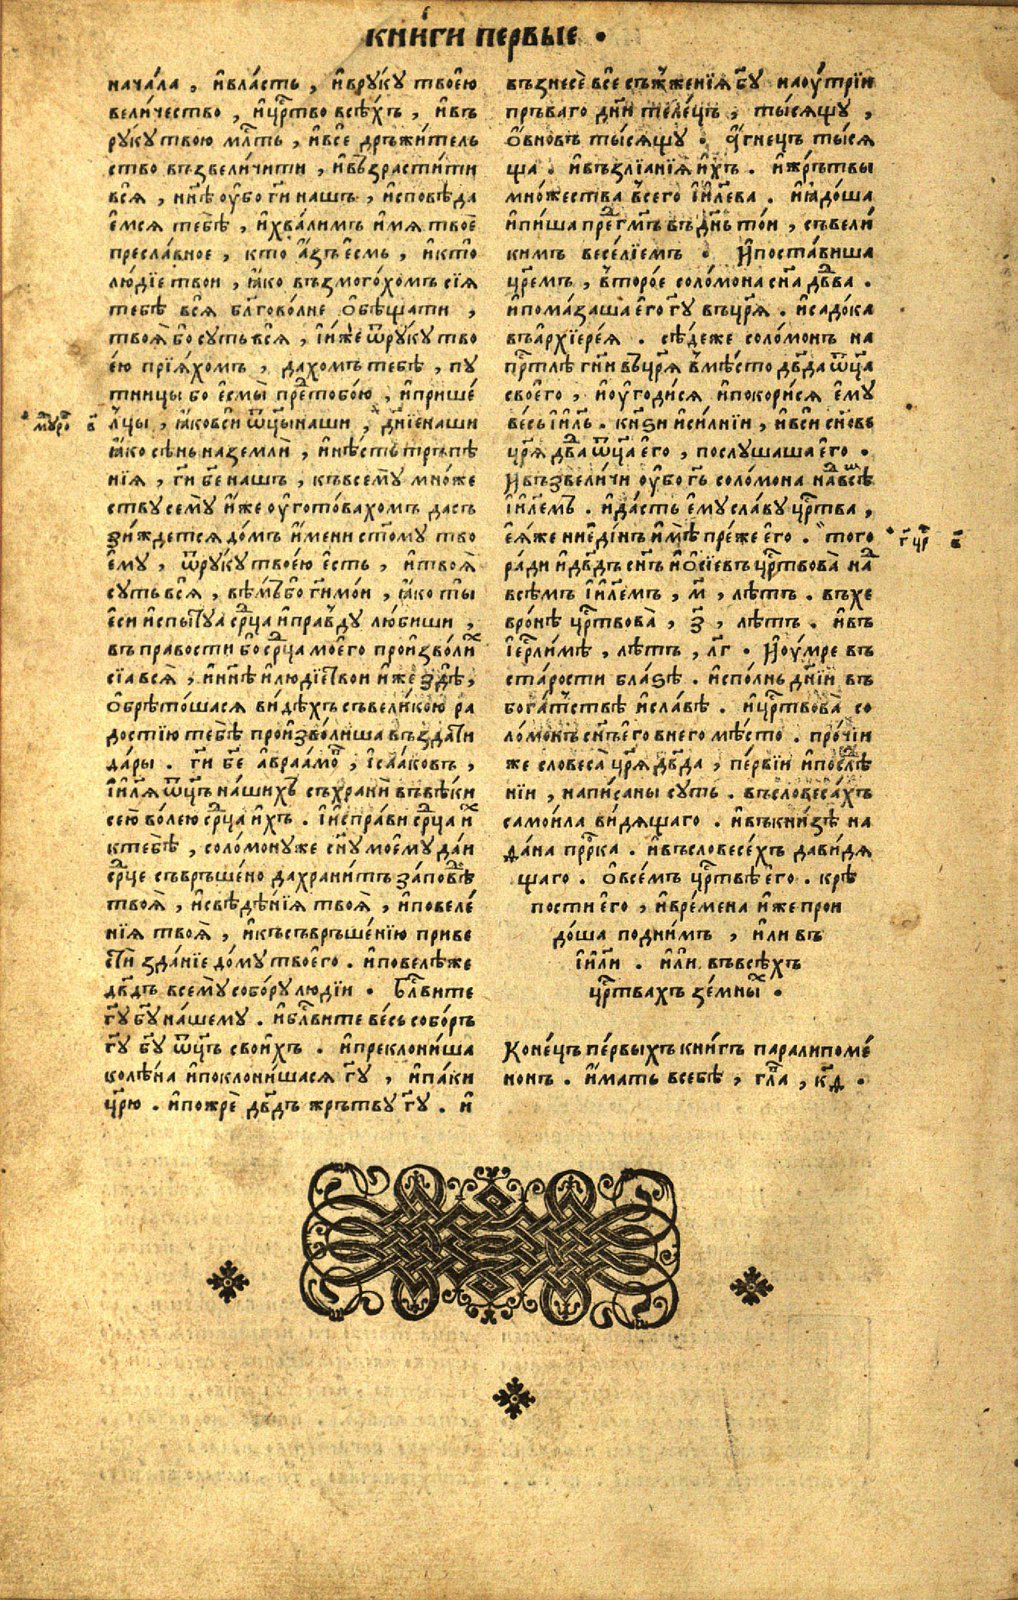 книги первые .
начала , ивласть , ивруку твоею
величество , ицр҃тво всѣхъ , ивъ
руку твою мл҃ть , ивсе дръжитель
ство възвеличити , ивъзрастити
вся , ннѣ оубо ги нашъ , исповѣда
емся тебѣ , ихвалимъ имя твое
преславное , кто азъ есмь , икто
людїе твои , ꙗко възмогохомъ сїя
тебѣ вся блг҃оволне обѣщати ,
твоя бо суть вся , ииже ѿруку тво
ею прїяхомъ , дахомъ тебѣ , пу
тницы бо есмы прет҃обою , ипришє
лцы , ꙗковси ѿцы наши , дн҃їе наши
ꙗко сѣнь на земли , инѣсть тръпѣ
нїя , ги бе нашъ , къвсему множе
ству сему иже оуготовахомъ дасъ
зиждется домъ имени ст҃ому тво
ему , ѿруку твоею есть , итвоя
суть вся , вѣмъбо ги мои , ꙗко ты
еси испытуа ср҃ца иправду любиши ,
въ правости бо ср҃ца моего произволи
сїа вся , иннѣ илюдїе твои иже здѣ ,
обрѣтошася видѣхъ съвеликою ра
достїю тебѣ произволиша въздати
дары . ги бе авраамо , їсааковъ ,
їиля ѿцъ нашихъ съхрани въвѣки
сею волею ср҃ца ихъ . їисправи ср҃ца и
ктебѣ , соломонуже сн҃у моему даи
ср҃це съвръшено да хранитъ заповѣ
твоя , исвѣдѣнїя твоя , иповеле
нїя твоя , икъсъвръшенїю приве
сти зданїе дому твоего . иповелѣже
дв҃дъ всему собору людїи . бл҃вите
гу бу нашему . ибл҃вите весь соборъ
гу бу ѿцъ своихъ . ипреклониша
колѣна ипоклонишася гу , ипаки
цр҃ю . ипожре дв҃дъ жрътву гу . и
мтуро в҃
възнесе все съжженїя бу наоутрїи
пръваго дн҃и телець , тысящу ,
овновъ тысящу . агнецъ тыся
ща . ивъзлїанїя ихъ . ижрътвы
множества всего їилева . иꙗдоша
ипиша прег҃мъ въ дн҃ь тои , съвели
кимъ веселїемъ . ипоставиша
цр҃емъ , второе соломона сн҃а дв҃а .
ипомазаша его гу въцр҃я . исадока
въархїерея . сѣдеже соломонъ на
пр҃тлѣ гни въцр҃я вмѣсто дв҃да ѿца
своего , иоугодися ипокорися ему
весь їиль . кн҃ѕи исилнїи , ивси сн҃ове
цр҃я дв҃а ѿца его , послушаша его .
ивъзвеличи оубо гь соломона на всѣ
їилемъ . идасть ему славу цр҃тва ,
еяже ниединъ имѣ преже его . того
ради идв҃дъ сн҃ъ иосїевъ цр҃твова на
всѣмъ їилемъ , м҃ , лѣтъ . въхе
вронѣ цр҃твова , з҃ , лѣтъ . ивъ
їер҃лимѣ , лѣтъ , лг . иоумре въ
старости блаѕѣ . исполнь дн҃ии въ
богатьствѣ иславѣ . ицр҃твова со
ломонъ сн҃ъ его внего мѣсто . прочїи
же словеса цр҃я дв҃да , первїи ипослѣ
нїи , написаны суть . въсловесахъ
самоила видящаго . ивъкнизѣ на
дана пр҃рка . ивъсловесехъ давидя
щаго . овсемъ цр҃твѣ его . крѣ
пости его , ивремена иже прои
доша поднимъ , или въ
їили . или въвсѣхъ
цр҃твахъ земны .
г҃ цр҃ в҃
Конець первыхъ книгъ паралипоме
нонъ . имать всебѣ , гл҃а , кд҃ .